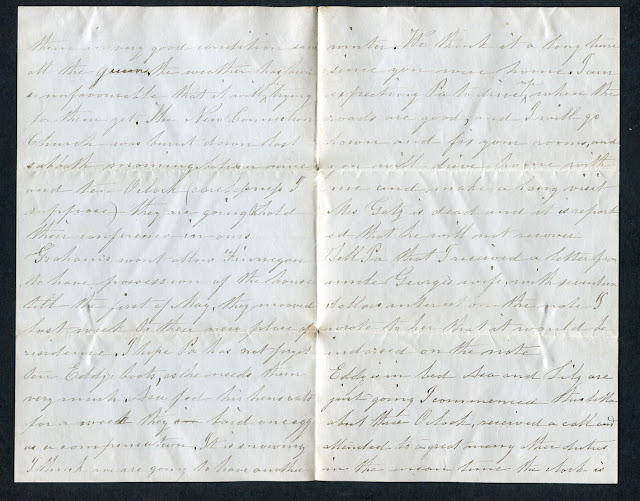 them in very good condition
all the the weather has been
so unfavourable that it will trying
to them yet. The New Connection
Church was burnt down last
sabbath morning between nine
and ten Oclock (carelessness I
suppose) they are going to hold
their conference in ours.
Grahams wont allow Finnegan
to have possession of the house
till the first of May, they moved
last week to their new place of
residence. I hope Pa has not forgot
ten Eddy's boots, as he needs them
very much. Asa fed his hens oats
for a week they laid one egg
as a compensation. It is snowing
I think we are going to have another
winter. We think it a long time
since you were home. I am
expecting Pa to drive when the
roads are good, and I will go
down and fix your rooms, and
you will drive home with
me and make a long visit
Mrs Getz is dead and it is report
ed that he will not recover
Tell Pa that I received a letter from
uncle George's wife, with seventeen
dollars interest on the note. I
wrote to her that it would be
indorsed on the note
Eddy is in bed Asa and Lily are
just going I commenced this letter
about three Oclock, received a call and
attended to a great many other duties
in the mean time the clock is